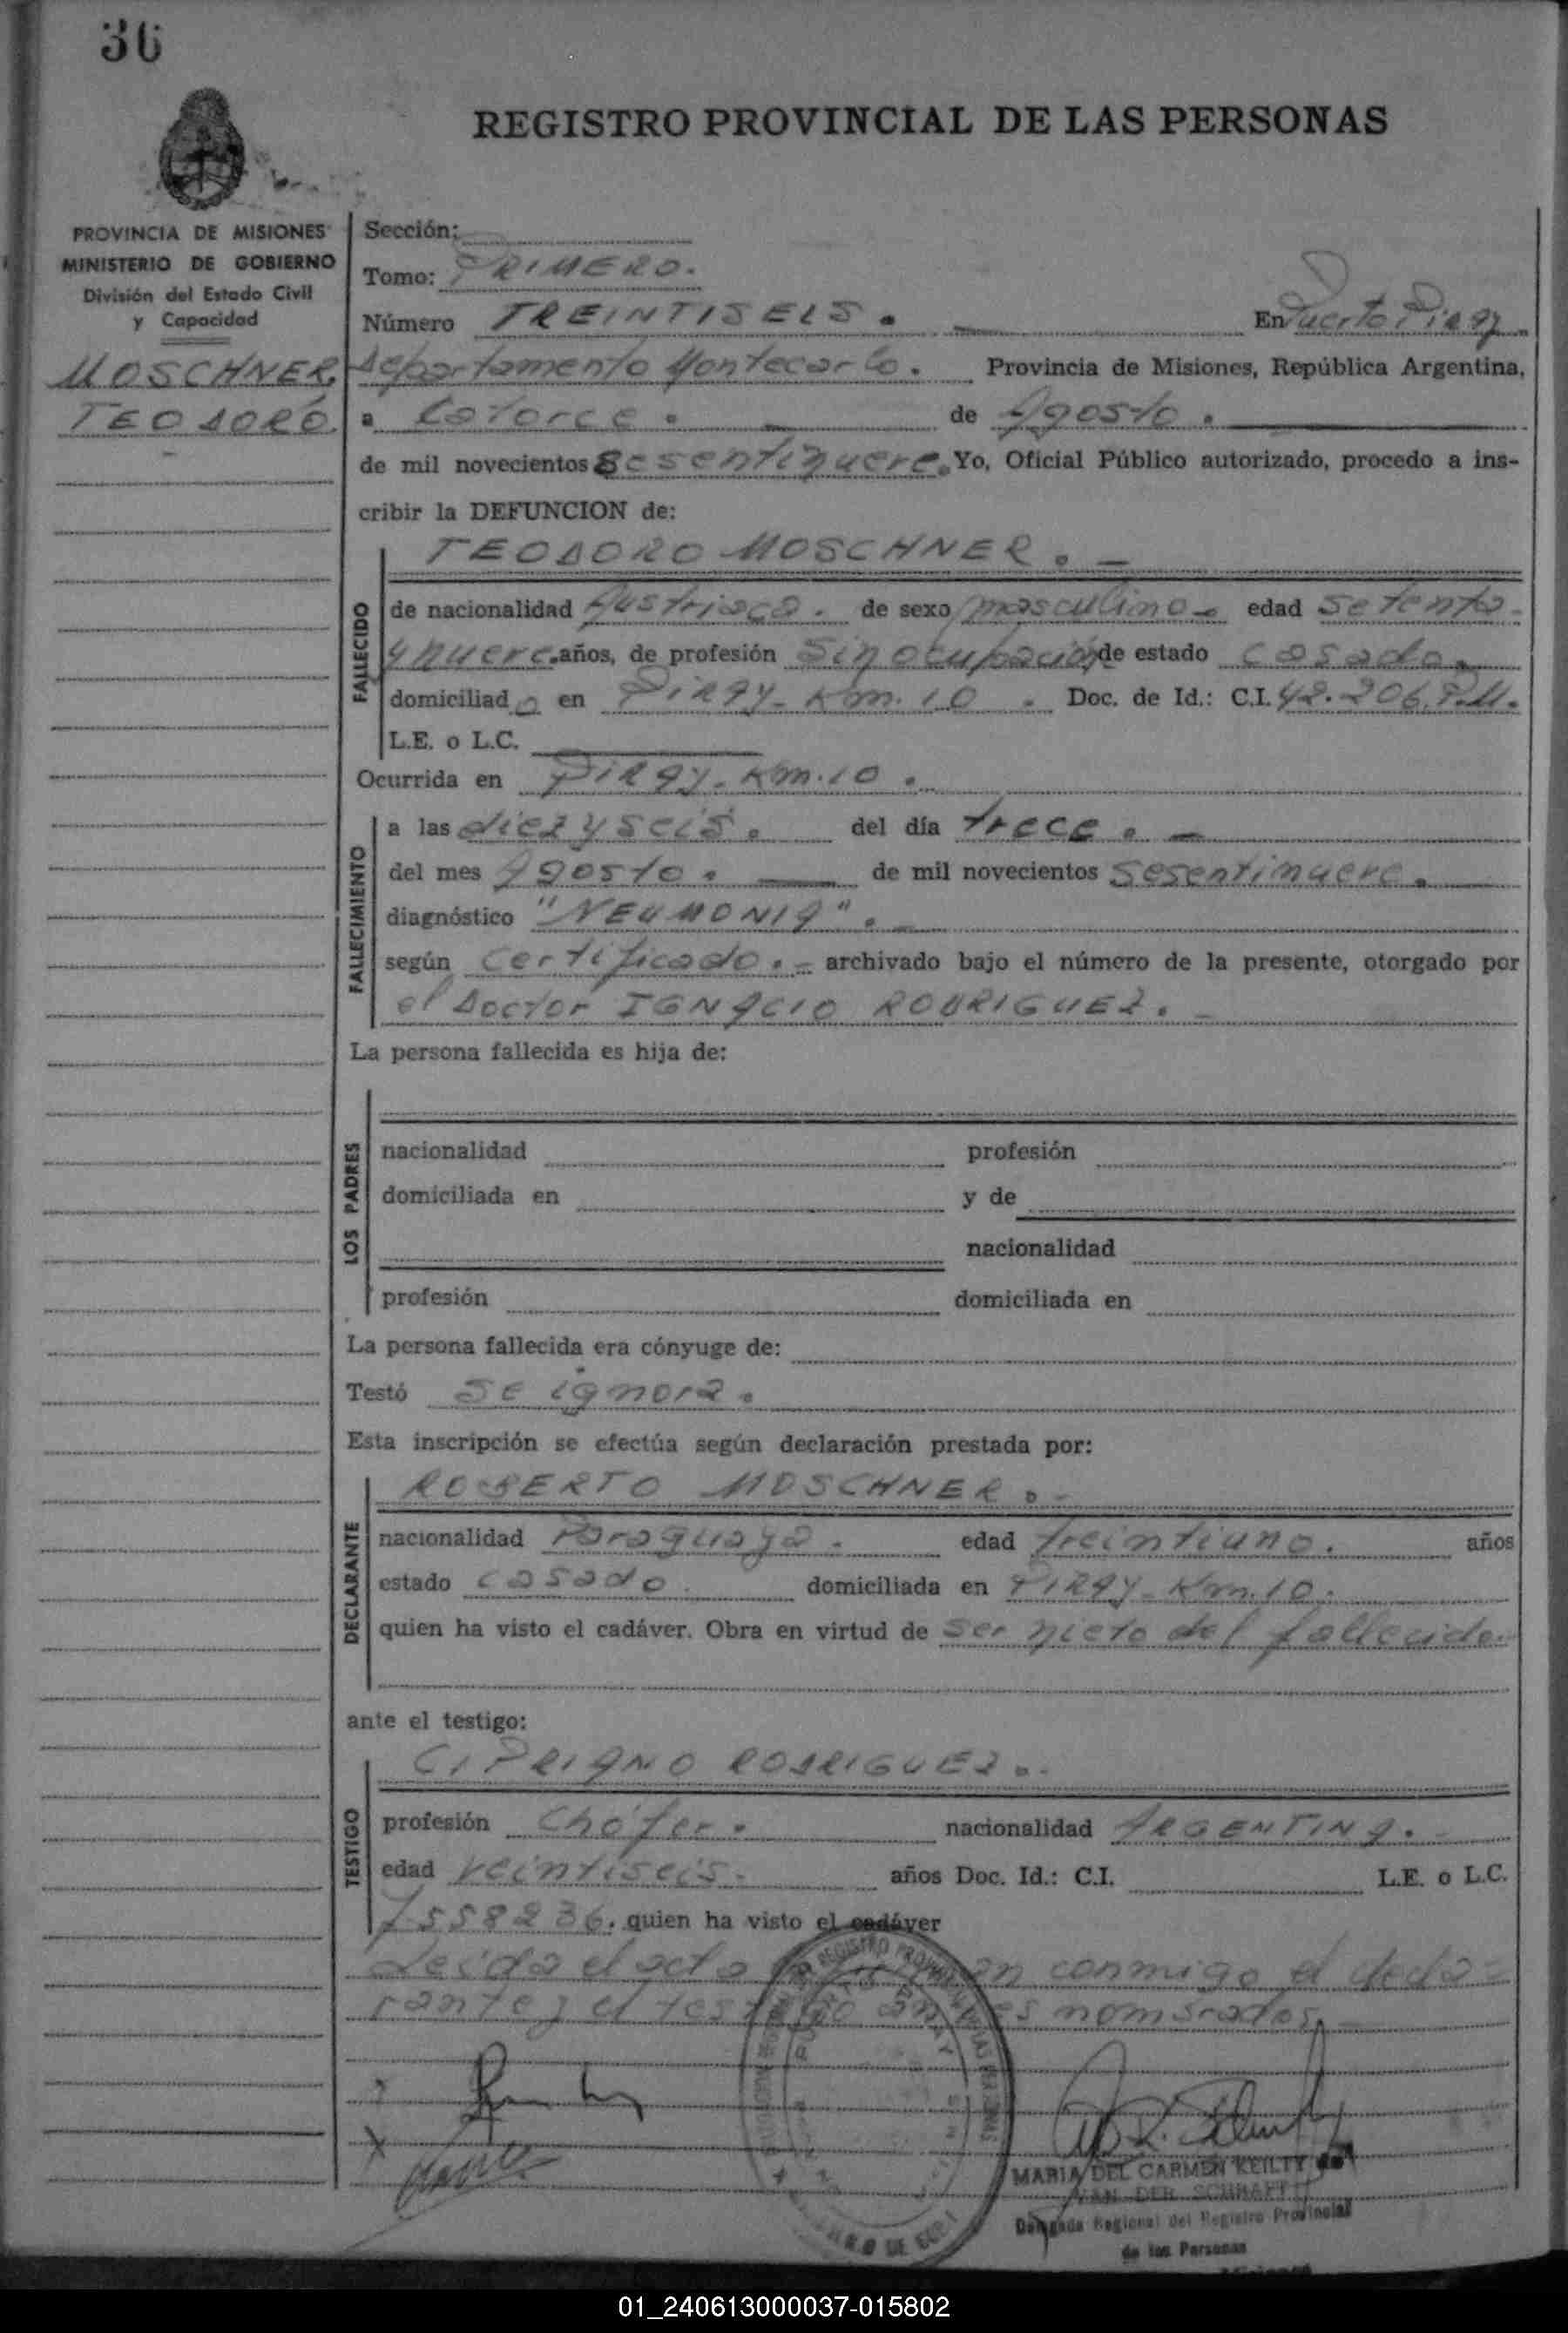 36
REGISTRO PROVINCIAL DE LAS PERSONAS
PROVINCIA DE MISIONES
MINISTERIO DE GOBIERNO
División del Estado Civil
y Capacidad
MOSCHNER,
TEODORO.
Sección:
Tomo: PRIMERO.
Número TREINTISEIS. En Puerto Piray
Departamento Montecarlo. Provincia de Misiones, República Argentina,
a Catorce. de Agosto.
de mil novecientos Sesentinueve. Yo, Oficial Público autorizado, procedo a ins-
cribir la DEFUNCION de:
TEODORO MOSCHNER. -
FALLECIDO
de nacionalidad Austriaca. de sexo masculino - edad setenta
y nueve. años, de profesión Sin ocupación de estado casado.
domiciliado en Piray - Km. 10. Doc. de Id.: C.I. 42.206. P.M.
L.E. o L.C.
Ocurrida en Piray - Km. 10.
FALLECIMIENTO
a las diez y seis. del día trece. -
del mes Agosto. de mil novecientos Sesentinueve.
diagnóstico "NEUMONIA". -
según Certificado. - archivado bajo el número de la presente, otorgado por
el Doctor IGNACIO RODRIGUEZ. -
La persona fallecida es hija de:
LOS PADRES
nacionalidad profesión
domiciliada en y de
nacionalidad
profesión domiciliada en
La persona fallecida era cónyuge de:
Testó Se ignora.
Esta inscripción se efectúa según declaración prestada por:
ROBERTO MOSCHNER. -
DECLARANTE
nacionalidad Paraguaya. edad treintiuno. años
estado casado. domiciliada en Piray - Km. 10.
quien ha visto el cadáver. Obra en virtud de ser nieto del fallecido.
ante el testigo:
CIPRIANO RODRIGUEZ. -
TESTIGO
profesión Chófer. nacionalidad ARGENTINA. -
edad veintiseis. años Doc. Id.: C.I. L.E. o L.C.
7558236. quien ha visto el cadáver
Leida el acta la firman conmigo el decla-
rante y el testigo antes nombrados. -
MARIA DEL CARMEN KEILTY de
VAN DER SCHRAFT
Delegada Regional del Registro Provincial
de las Personas
01_240613000037-015802